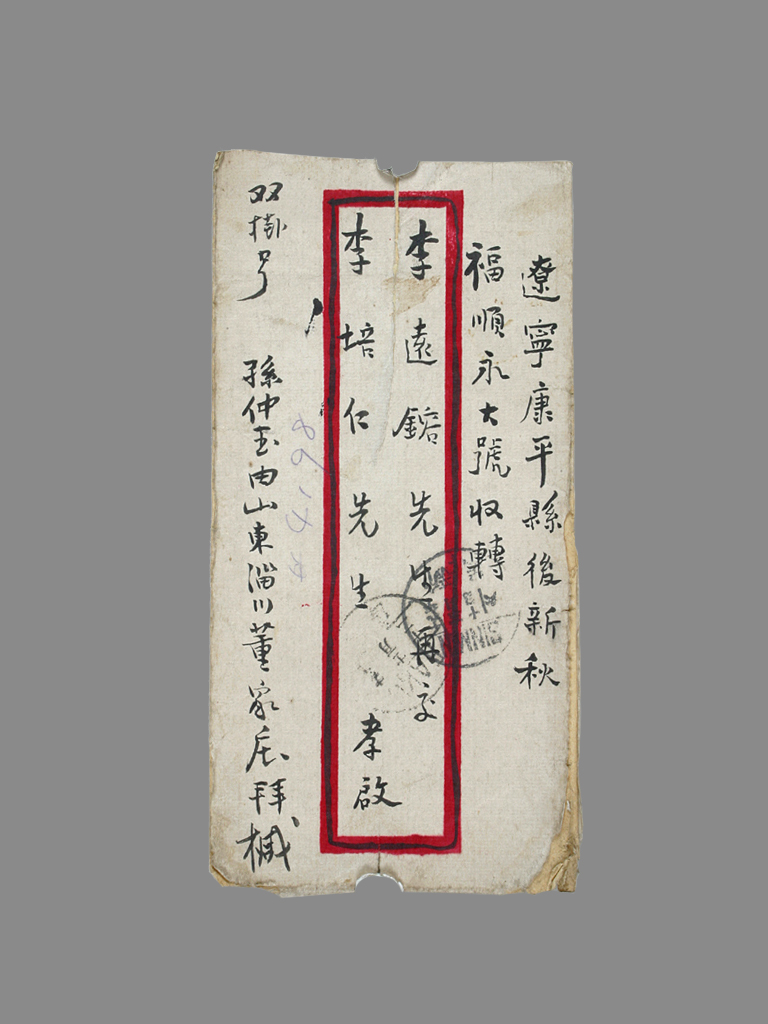 遼寧康平縣後新秋
福順永大號收轉
李遠鎔先生再交
李培仁先生 孝啟
双掛号
孫仲玉由山東淄川董家庄拜椷